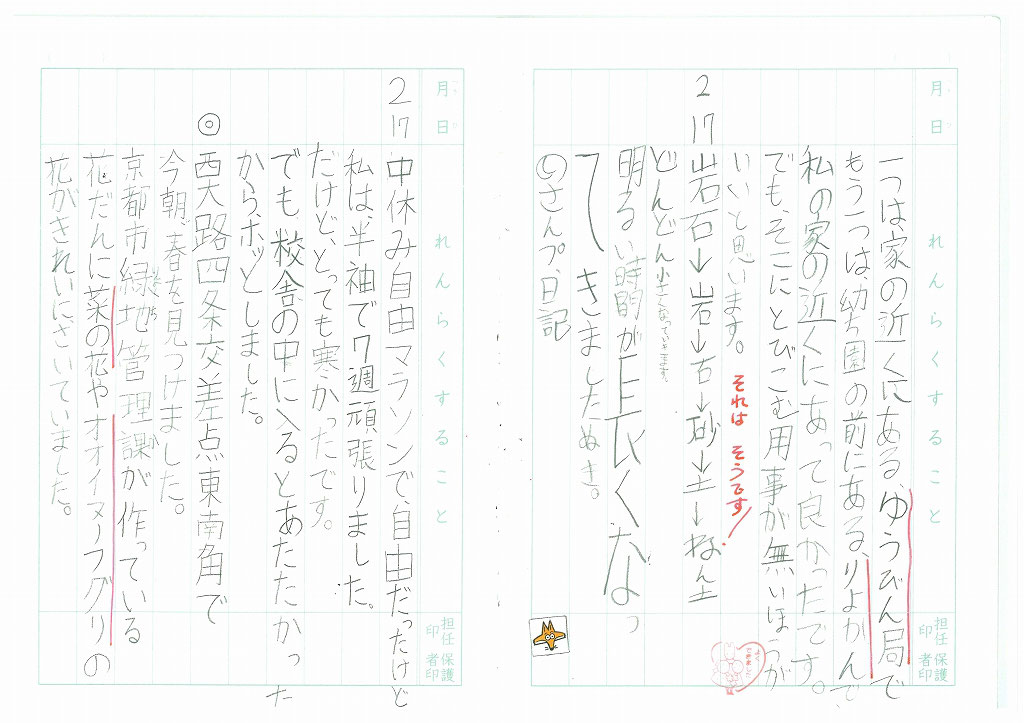 月日 れんらくすること 担任印 保護者印
一つは家の近くにある、ゆうびん局で
もう一つは、幼ち園の前にある、りよかんで
私の家の近くにあって良かったです。
でも、そこにとびこむ用事が無いほうが
いいと思います。
それは そうです!
2 17 岩石↓岩↓石↓砂↓土↓ねん土
どんどん小さくなっていきます。
明るい時間が長くなっ
てきましたぬき。
のさんプ、日記
月日 れんらくすること 担任印 保護者印
2 17 中休み自由マラソンで、自由だったけど
私は、半袖で7週頑張りました。
だけど、とっても寒かったです。
でも、校舎の中に入るとあたたかった
から、ホッとしました。
◎ 西大路四条交差点東南角で
今朝、春を見つけました。
京都市緑地管理課が作っている
花だんに菜の花やオオイヌノフグリの
花がきれいにさいていました。